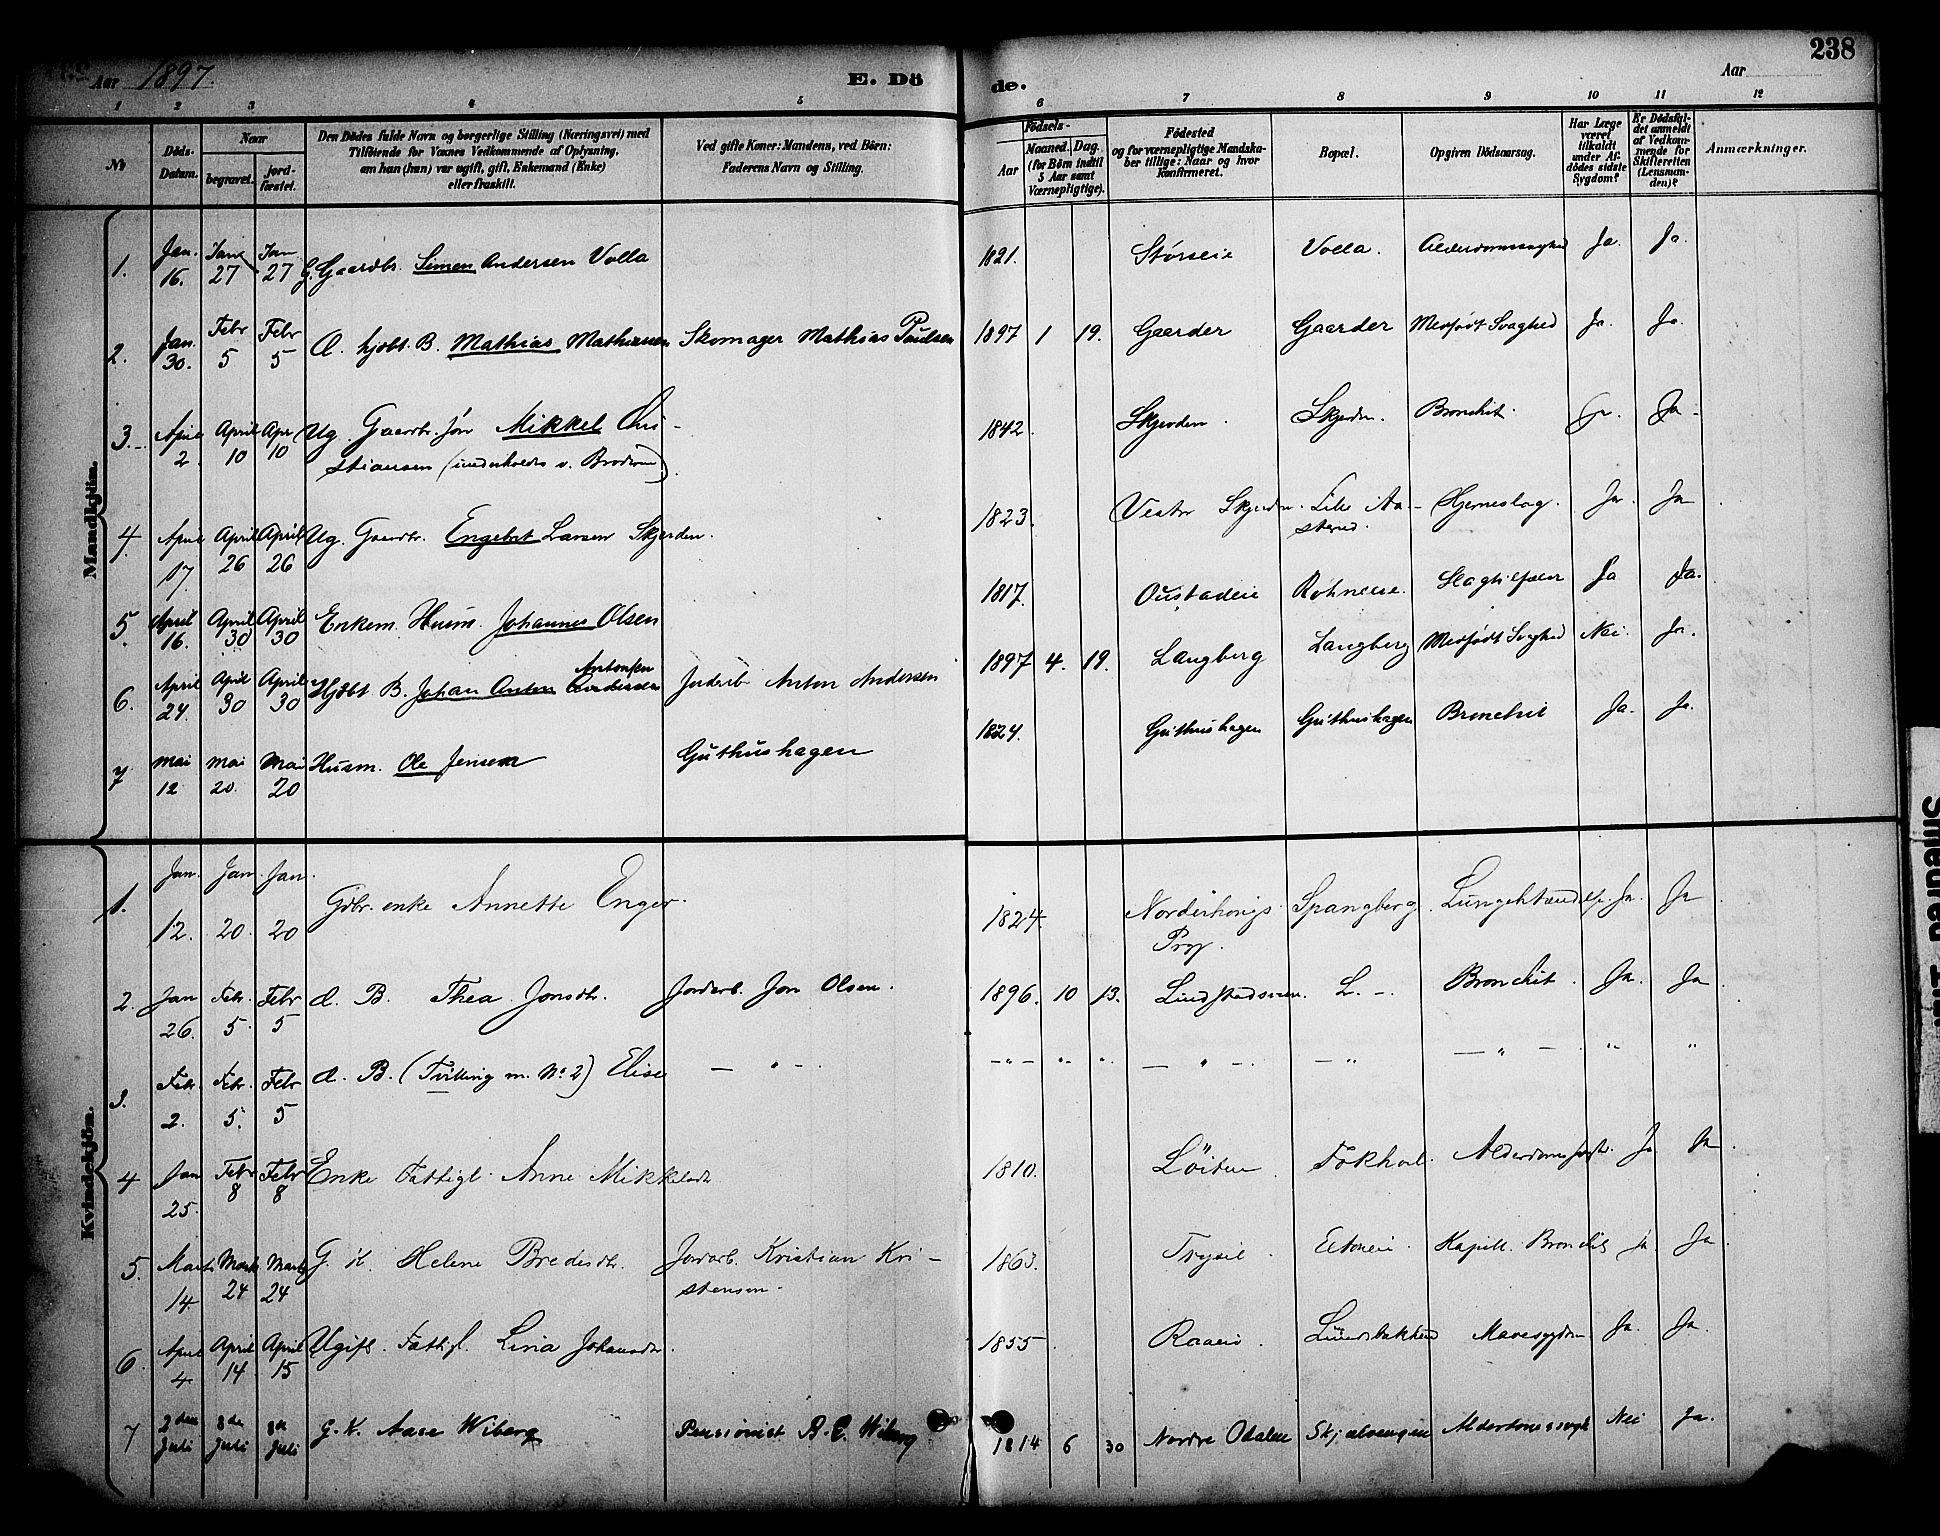 238
Aar 1897. E. Dö de. Aar
1 2 3 4 5 6 7 8 9 10 11 12
№ Döds-Datum. Naar begravet. jord-fæstet. Den Dödes fulde Navn og borgerlige Stilling (Næringsvei) med Tilföiende for Voxnes Vedkommende af Oplysning, om han (hun) var ugift, gift, Enkemand (Enke) eller fraskilt. Ved gifte Koner: Mandens, ved Börn: Faderens Navn og Stilling. Födsels- Aar Maaned. Dag. (for Börn indtil 5 Aar samt Værnepligtige). Födested og for værnepligtige Mandskaber tillige: Naar og hvor Konfirmeret. Bopæl. Opgiven Dödsaarsag. Har Læge været tilkaldt under Afdödes sidste Sygdom? Er Dödsfaldet anmeldt af Vedkommende for Skifteretten (Lensmanden)? Anmærkninger.
Mandkjön.
1. Jan. 16. Jan 27 Jan 27 G. Gaardbr. Simen Andersen Volla 1821. Størseie Volla. Alderdomssvaghed Ja. Ja.
2. Jan. 30. Febr 5 Febr 5 d. hjdbt. B. Mathias Mathiesen Skomager Mathias Paulsen 1897 1 19. Gaarder Gaarder Medfødt Svaghed Ja. Ja.
3. April 2. April 10 Apr 10 Ug. Gaardbr. søn Mikkel Chri-
stiansen (underholdes v. Broderen). 1842 Skjerden Skjerdn. Bronchit. Ja. Ja.
4. April 17. April 26 April 26 Ug. Gaardbr. Engebret Larsen Skjerden. 1823. Vestre Skjerdn. Lille Aa-
stad. Hjerneslag. Ja. Ja
5. April 16. April 30 April 30 Enkem. Husm. Johannes Olsen 1817. Oustadeie Rohneeie. Slagtilfælde Ja Ja.
6. April 24. April 30 April 30 Hjdbt B. Johan Anton Andersen Antonsen Jordarb Anton Andersen 1897 4. 19. Langberg Langberg Medfødt Svaghed Nei. Ja.
7 Mai 12 Mai 20. Mai 20 Husm. Ole Jensen Guthushagen 1824. Guthushagen Guthushagen Bronchit Ja. Ja.
Kvindekjön.
1. Jan. 12. Jan. 20. Jan. 20 Gdbr. enke Annette Enger. 1824. Norderhougs
Prgj. Spangberg. Lungebtændelse. Ja. Ja
2. Jan 26. Febr. 5. Febr 5 d. B. Thea Jonsdtr. Jordarb. Jon Olsen. 1896. 10 13. Lindstadsveen. L. -. Bronchit. Ja. Ja
3. Febr. 2. Febr. 5. Febr 5 d. B. (Tvilling m. No 2) Elise — " — — " — " " — " — — " — " — " "
4 Jan 25. Febr 8 Febr 8 Enke Fattigl. Anne Mikkelsdtr 1810. Löiten Fokhol. Ja Ja
5. Marts 14 Marts 24 Marts 24 G. K. Helene Bredesdtr. Jordarb. Kristian Kri-
stensen. 1863. Trysil. Kapill. Bronchit Ja Ja
6. April 4 April 14 April 15 Ugift. Fattigl. Lina Johansdtr. 1855 Mavesygdom Ja. Ja.
7 2den Juli 8de Juli 8de Juli G. K. Aase Wiberg Pensionist B. C. Wiberg 1814 6 30 Nordre Odalen Skjælvangen Alderdomssvagh Nei Ja.